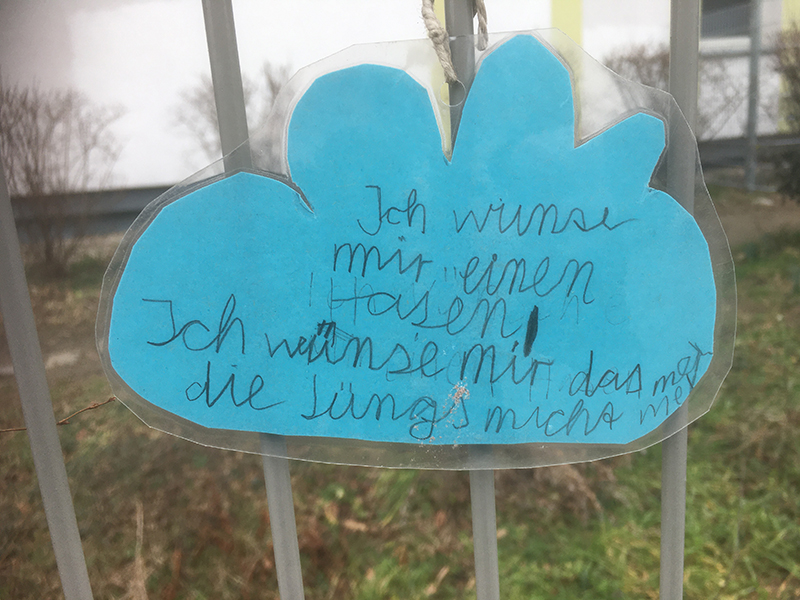 Ich wunse
mir einen
Hasen!
Ich wünse mir das
die Jüngs nicht